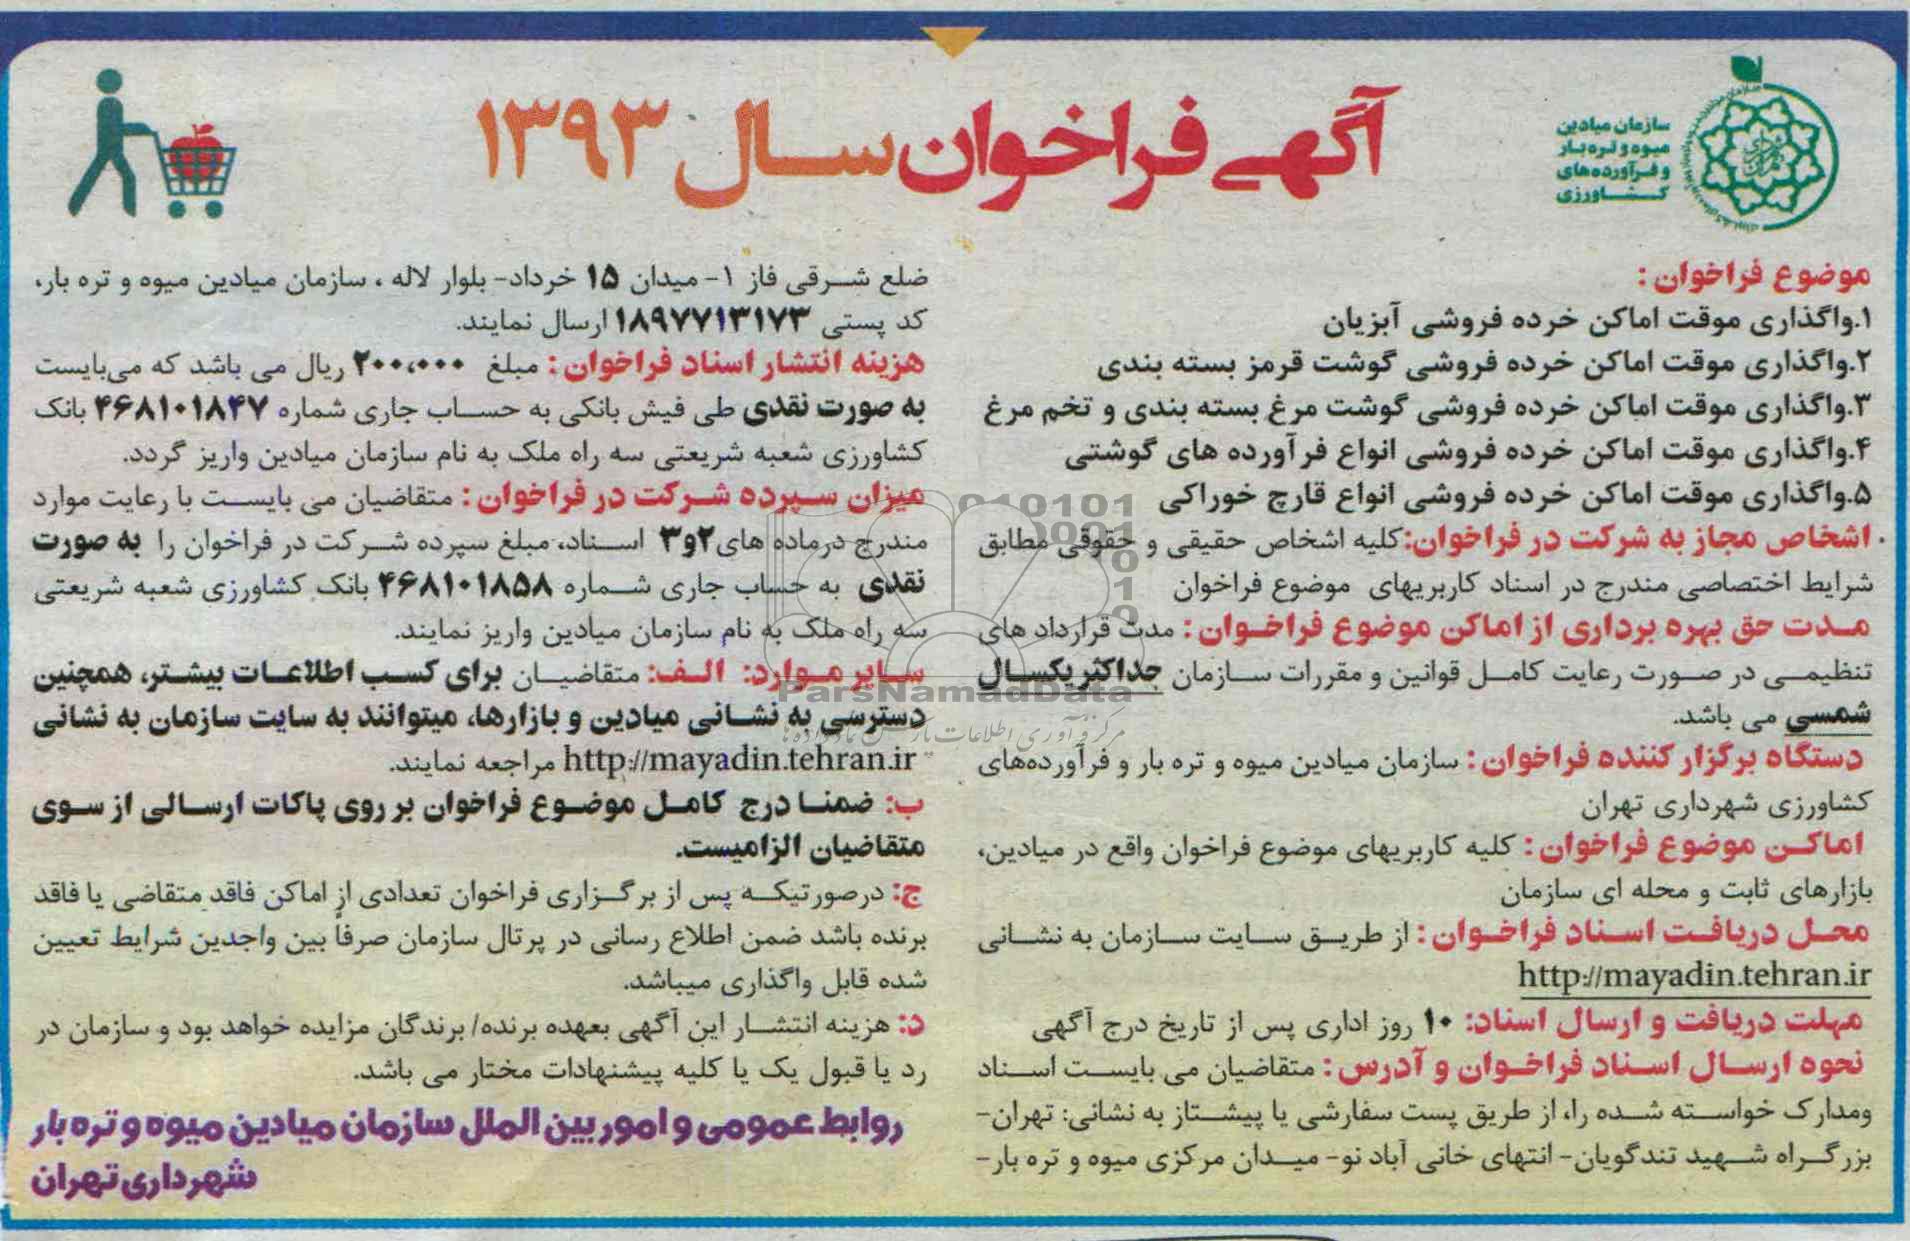 سازمان میادین
میوه و تره بار
و فرآورده‌های
کشاورزی
آگهی فراخوان سال ۱۳۹۳
موضوع فراخوان :
۱.واگذاری موقت اماکن خرده فروشی آبزیان
۲.واگذاری موقت اماکن خرده فروشی گوشت قرمز بسته بندی
۳.واگذاری موقت اماکن خرده فروشی گوشت مرغ بسته بندی و تخم مرغ
۴.واگذاری موقت اماکن خرده فروشی انواع فرآورده های گوشتی
۵.واگذاری موقت اماکن خرده فروشی انواع قارچ خوراکی
اشخاص مجاز به شرکت در فراخوان:کلیه اشخاص حقیقی و حقوقی مطابق
شرایط اختصاصی مندرج در اسناد کاربریهای موضوع فراخوان
مدت حق بهره برداری از اماکن موضوع فراخوان : مدت قرارداد های
تنظیمی در صورت رعایت کامل قوانین و مقررات سازمان حداکثر یکسال
شمسی می باشد.
دستگاه برگزار کننده فراخوان : سازمان میادین میوه و تره بار و فرآورده‌های
کشاورزی شهرداری تهران
اماکن موضوع فراخوان : کلیه کاربریهای موضوع فراخوان واقع در میادین،
بازارهای ثابت و محله ای سازمان
محل دریافت اسناد فراخوان : از طریق سایت سازمان به نشانی
http://mayadin.tehran.ir
مهلت دریافت و ارسال اسناد: ۱۰ روز اداری پس از تاریخ درج آگهی
نحوه ارسال اسناد فراخوان و آدرس : متقاضیان می بایست اسناد
ومدارک خواسته شده را، از طریق پست سفارشی یا پیشتاز به نشانی: تهران-
بزرگراه شهید تندگویان- انتهای خانی آباد نو- میدان مرکزی میوه و تره بار-
ضلع شرقی فاز ۱- میدان ۱۵ خرداد- بلوار لاله ، سازمان میادین میوه و تره بار،
کد پستی ۱۸۹۷۷۱۳۱۷۳ ارسال نمایند.
هزینه انتشار اسناد فراخوان : مبلغ ۲۰۰،۰۰۰ ریال می باشد که می‌بایست
به صورت نقدی طی فیش بانکی به حساب جاری شماره ۴۶۸۱۰۱۸۴۷ بانک
کشاورزی شعبه شریعتی سه راه ملک به نام سازمان میادین واریز گردد.
میزان سپرده شرکت در فراخوان : متقاضیان می بایست با رعایت موارد
مندرج درماده های ۲و۳ اسناد، مبلغ سپرده شرکت در فراخوان را به صورت
نقدی به حساب جاری شماره ۴۶۸۱۰۱۸۵۸ بانک کشاورزی شعبه شریعتی
سه راه ملک به نام سازمان میادین واریز نمایند.
سایر موارد: الف: متقاضیان برای کسب اطلاعات بیشتر، همچنین
دسترسی به نشانی میادین و بازارها، میتوانند به سایت سازمان به نشانی
http://mayadin.tehran.ir مراجعه نمایند.
ب: ضمنا درج کامل موضوع فراخوان بر روی پاکات ارسالی از سوی
متقاضیان الزامیست.
ج: درصورتیکه پس از برگزاری فراخوان تعدادی از اماکن فاقد متقاضی یا فاقد
برنده باشد ضمن اطلاع رسانی در پرتال سازمان صرفاً بین واجدین شرایط تعیین
شده قابل واگذاری میباشد.
د: هزینه انتشار این آگهی بعهده برنده/ برندگان مزایده خواهد بود و سازمان در
رد یا قبول یک یا کلیه پیشنهادات مختار می باشد.
روابط عمومی و امور بین الملل سازمان میادین میوه و تره بار
شهرداری تهران
ParsNamadData
مرکز فرآوری اطلاعات پارس نماد داده ها